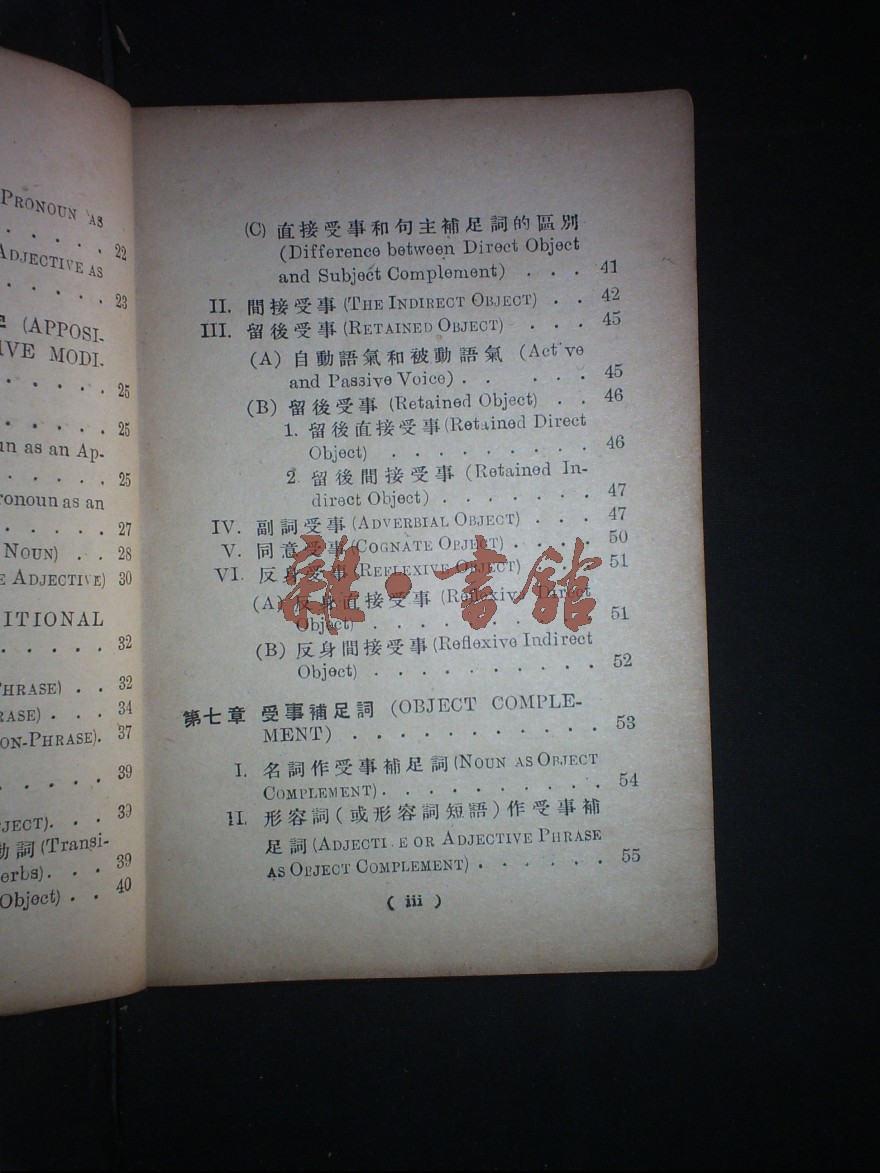 PRONOUN AS
. . . . . 22
ADJECTIVE AS
. . . . . 23
(APPOSI-
IVE MODI-
. . . . . 25
. . . . . 25
un as an Ap-
. . . . . 25
ronoun as an
. . . . . 27
NOUN) . . 28
E ADJECTIVE) 30
ITIONAL
. . . . . 32
PHRASE) . . 32
RASE) . . . 34
ON-PHRASE). 37
. . . . . 39
JECT). . . 39
動詞 (Transi-
erbs). . . 39
Object) . . 40
(C) 直接受事和句主補足詞的區別
(Difference between Direct Object
and Subject Complement) . . . 41
II. 間接受事 (THE INDIRECT OBJECT) . . 42
III. 留後受事 (RETAINED OBJECT) . . . 45
(A) 自動語氣和被動語氣 (Active
and Passive Voice) . . . . . 45
(B) 留後受事 (Retained Object) . . 46
1. 留後直接受事 (Retained Direct
Object) . . . . . . . . 46
2. 留後間接受事 (Retained In-
direct Object) . . . . . . . 47
IV. 副詞受事 (ADVERBIAL OBJECT) . . . 47
V. 同意受事 (COGNATE OBJECT) . . . . 50
VI. 反身受事 (REFLEXIVE OBJECT) . . . 51
(A) 反身直接受事 (Reflexive Direct
Object) . . . . . . . . . 51
(B) 反身間接受事 (Reflexive Indirect
Object) . . . . . . . . . 52
第七章 受事補足詞 (OBJECT COMPLE-
MENT) . . . . . . . . . . . 53
I. 名詞作受事補足詞 (NOUN AS OBJECT
COMPLEMENT). . . . . . . . . . 54
II. 形容詞 (或形容詞短語) 作受事補
足詞 (ADJECTI E OR ADJECTIVE PHRASE
AS OBJECT COMPLEMENT) . . . . . . 55
( iii )
雜·書館